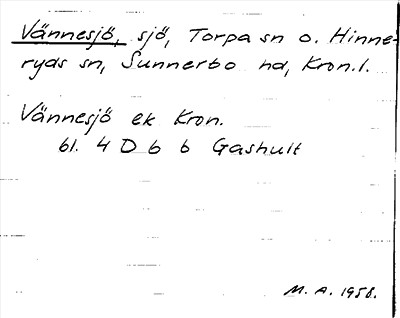 Vännesjö, sjö, Torpa sn o. Hinne-
ryds sn, Sunnerbo hd, Kron.l.
Vännesjö ek Kron.
bl. 4 D 6 b Gashult
M. A. 1958.